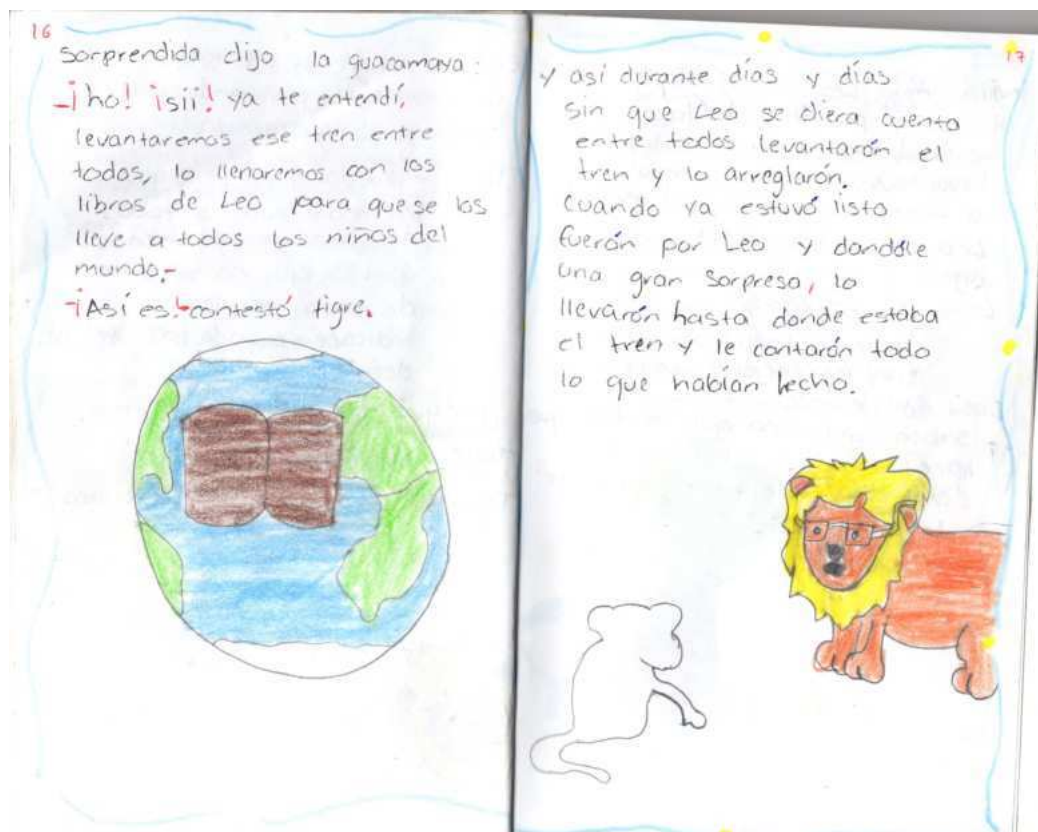 16
Sorprendida dijo la guacamaya:
-¡ho! ¡sii! ya te entendí,
levantaremos ese tren entre
todos, lo llenaremos con los
libros de Leo para que se los
lleve a todos los niños del
mundo.-
-¡Así es!-contestó tigre.
17
y así durante días y días
sin que Leo se diera cuenta
entre todos levantarón el
tren y lo arreglarón.
Cuando ya estuvó listo
fuerón por Leo y dandóle
una gran sorpresa, lo
llevárón hasta donde estaba
el tren y le contarón todo
lo que habían hecho.